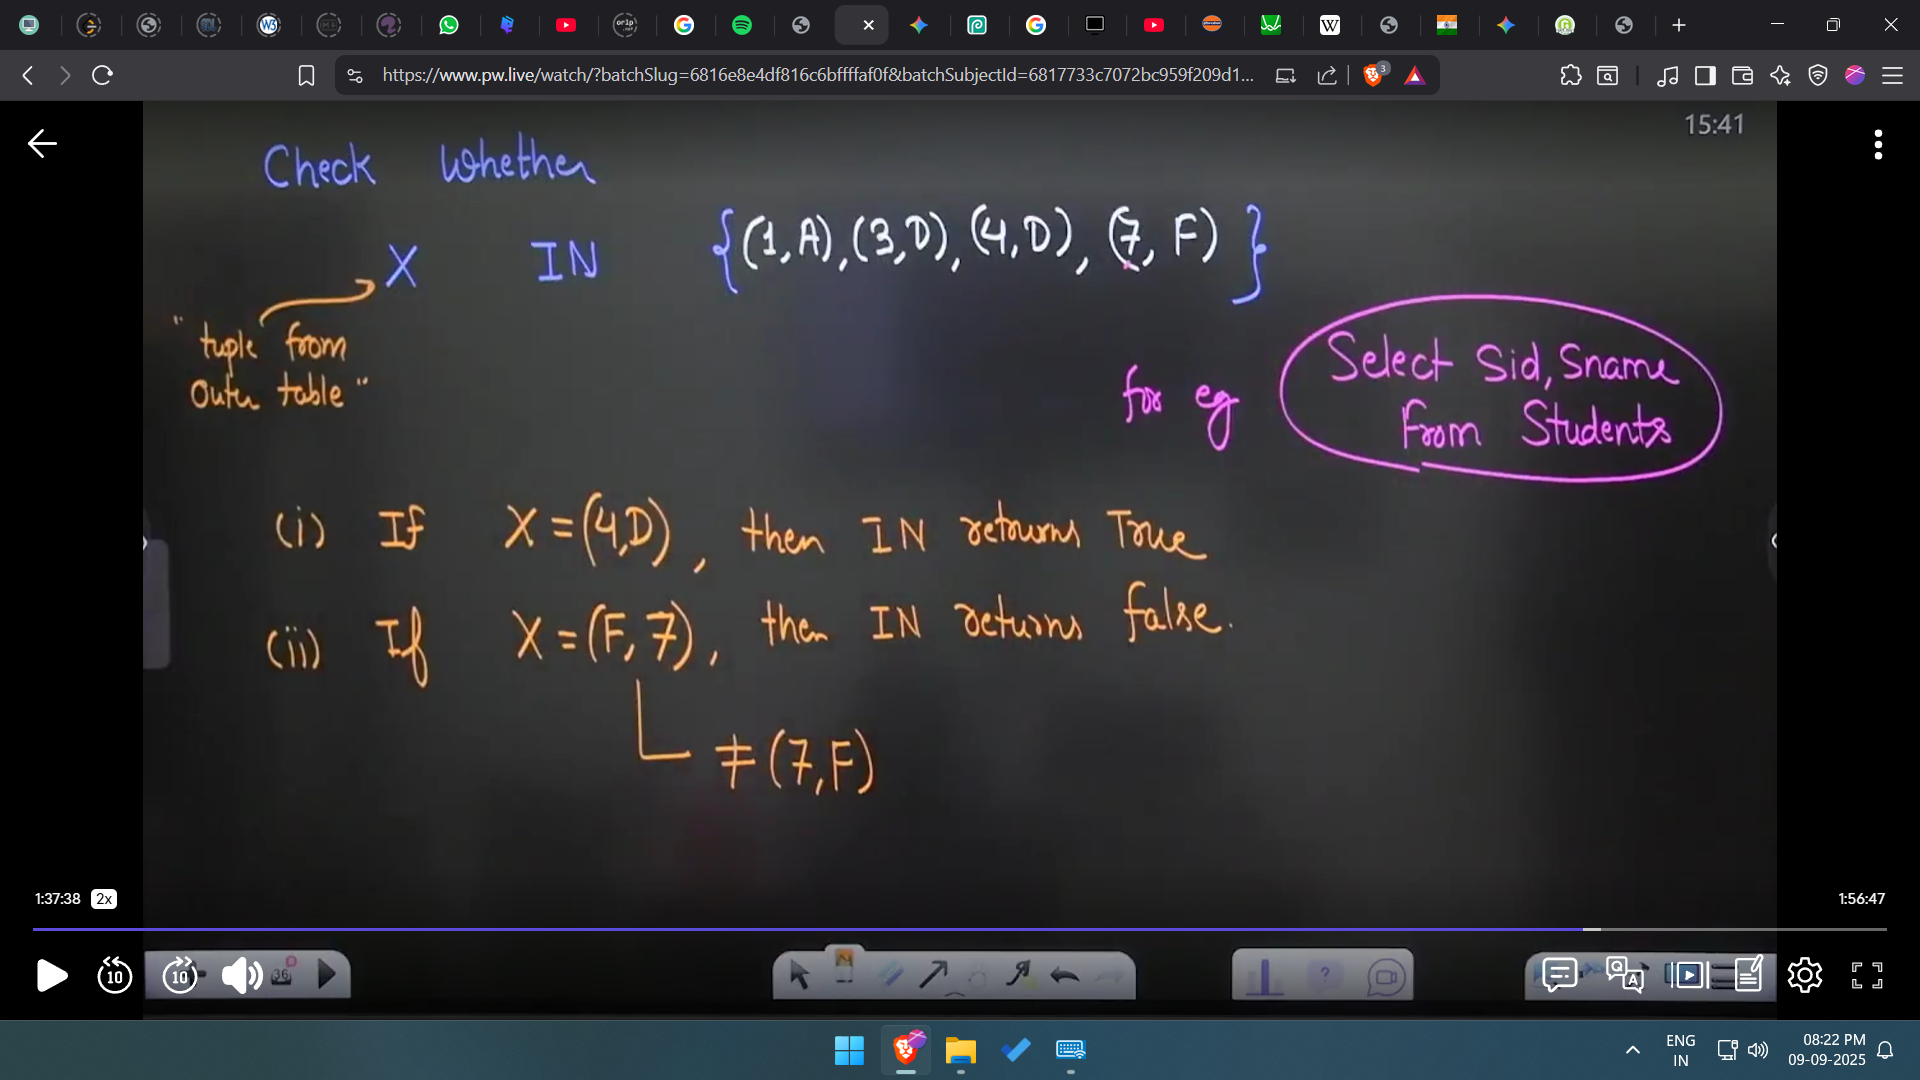 https://www.pw.live/watch/?batchSlug=6816e8e4df816c6bffffaf0f&batchSubjectId=6817733c7072bc959f209d1...
3
15:41
Check Whether
X IN {(1,A),(3,D),(4,D),(7,F)}
"tuple from
Outer table"
for eg
Select Sid, Sname
From Students
(i) If X=(4,D), then IN returns True
(ii) If X=(F,7), then IN returns false.
≠(7,F)
1:37:38 2x
1:56:47
10
10
36
ENG
IN
08:22 PM
09-09-2025